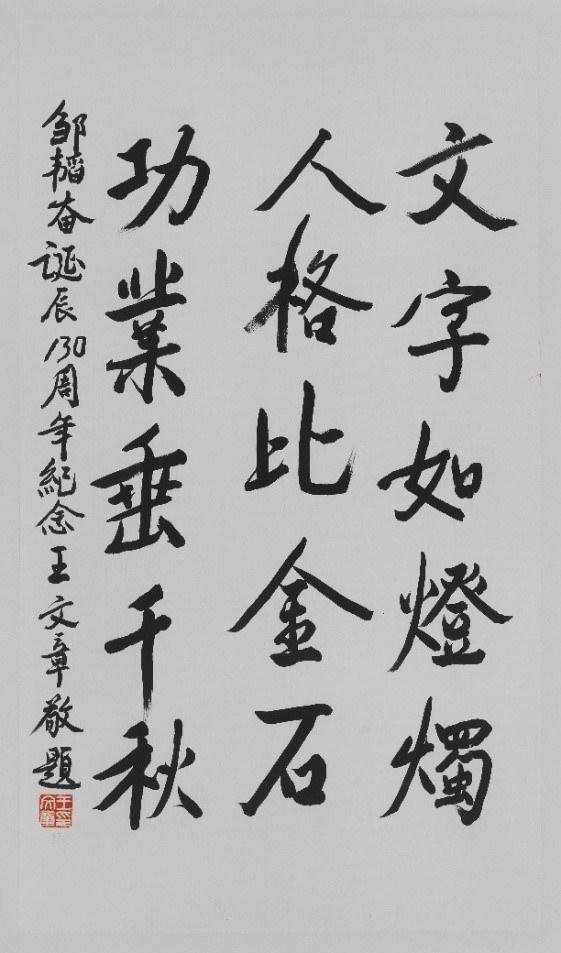 文字如燈燭
人格比金石
功業垂千秋
邹韬奋诞辰130周年紀念王文章敬題